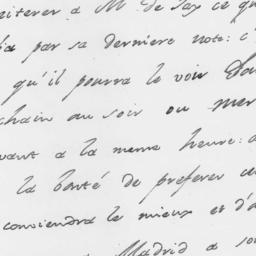 reiterer a Mr de Sax ce qu
par sa derniere note: c'
qu'il pourra le voir
chain au soir ou mer
vant a la meme heure: a
la bonté de preferer ce
conviendra le mieux et d'a
Madrid a so